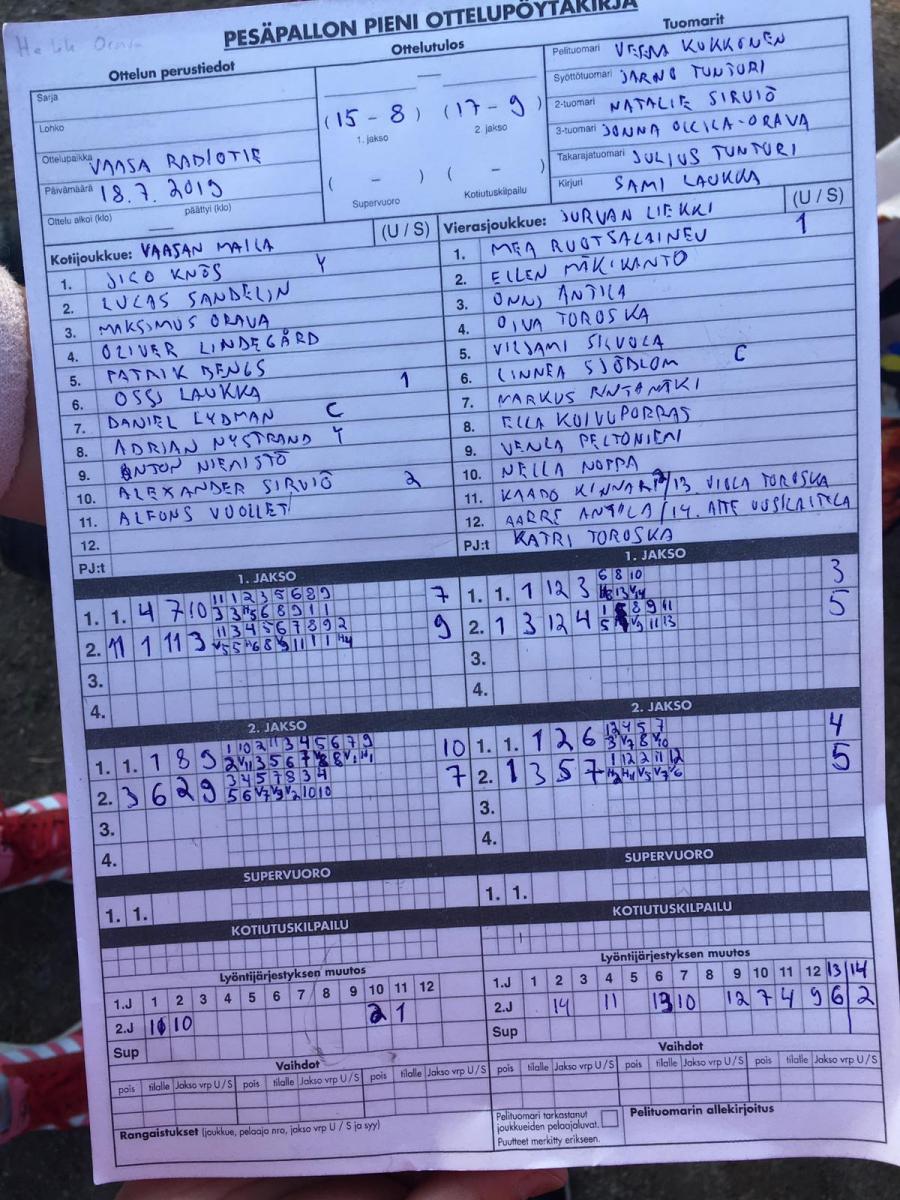 PESÄPALLON PIENI OTTELUPÖYTÄKIRJA
Ottelun perustiedot
Sarja
Lohko
Ottelupaikka VAASA RADIOTIE
Päivämäärä 18.7.2019
Ottelu alkoi (klo) päättyi (klo)
Ottelutulos
(15 - 8) (17 - 9)
1. jakso 2. jakso
( - ) ( - )
Supervuoro Kotiutuskilpailu
Tuomarit
Pelituomari VEERA KUKKONEN
Syöttötuomari JARNO TUNTURI
2-tuomari NATALIE SIRVIÖ
3-tuomari JONNA OLLILA-ORAVA
Takarajatuomari JULIUS TUNTURI
Kirjuri SAMI LAUKKA
Kotijoukkue: VAASAN MAILA (U / S)
1. JICO KNÖS Y
2. LUCAS SANDELIN
3. MAKSIMUS ORAVA
4. OLIVER LINDEGÅRD
5. PATRIK BENGS
6. OSSI LAUKKA 1
7. DANIEL LYDMAN C
8. ADRIAN NYSTRAND Y
9. ANTON NIEMISTÖ
10. ALEXANDER SIRVIÖ 2
11. ALFONS VUOLLET
12.
PJ:t
Vierasjoukkue: JURVAN LIEKKI (U / S)
1. MEA RUOTSALAINEN 1
2. ELLEN MÄKIKANTO
3. ONNI ANTILA
4. OIVA TOROSKA
5. VILJAMI SILVOLA
6. LINNEA SJÖBLOM C
7. MARKUS RINTAMÄKI
8. ELLA KOIVUPORRAS
9. VENLA PELTONIEMI
10. NELLA NOPPA
11. KAAPO KINNARI /13. VIOLA TOROSKA
12. AARRE ANTILA /14.
PJ:t KATRI TOROSKA
1. JAKSO
1. 1. 4 7 10 11 1 2 3 5 6 8 9 7
2. 11 1 11 3 11 3 4 5 6 7 8 9 2 9
3.
4.
1. JAKSO
1. 1. 1 12 3 6 8 10 3
2. 1 3 12 4 5
3.
4.
2. JAKSO
1. 1. 1 8 9 1 10 2 11 3 4 5 6 7 9 10
2. 3 6 2 9 3 4 5 7 8 3 4 7
3.
4.
2. JAKSO
1. 1. 1 2 6 12 4 5 7 4
2. 1 3 5 7 1 12 2 11 12 5
3.
4.
SUPERVUORO
1. 1.
SUPERVUORO
1. 1.
KOTIUTUSKILPAILU
KOTIUTUSKILPAILU
Lyöntijärjestyksen muutos
1.J 1 2 3 4 5 6 7 8 9 10 11 12
2.J 11 10 2 1
Sup
Lyöntijärjestyksen muutos
1.J 1 2 3 4 5 6 7 8 9 10 11 12 13 14
2.J 14 11 13 10 12 7 4 9 6 2
Sup
Vaihdot
pois tilalle Jakso vrp U / S pois tilalle Jakso vrp U / S pois tilalle Jakso vrp U / S
Vaihdot
pois tilalle Jakso vrp U / S pois tilalle Jakso vrp U / S pois tilalle Jakso vrp U / S
Rangaistukset (joukkue, pelaaja nro, jakso vrp U / S ja syy)
Pelituomari tarkastanut
joukkueiden pelaajaluvat.
Puutteet merkitty erikseen.
Pelituomarin allekirjoitus